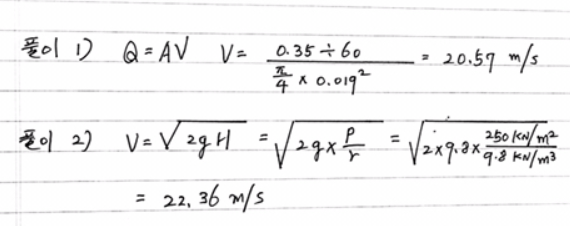 풀이 1) Q = AV V = 0.35 ÷ 60 / π/4 × 0.019² = 20.57 m/s
풀이 2) V = √2gH = √2g × P/r = √2 × 9.8 × 250 KN/m² / 9.8 KN/m³
= 22.36 m/s